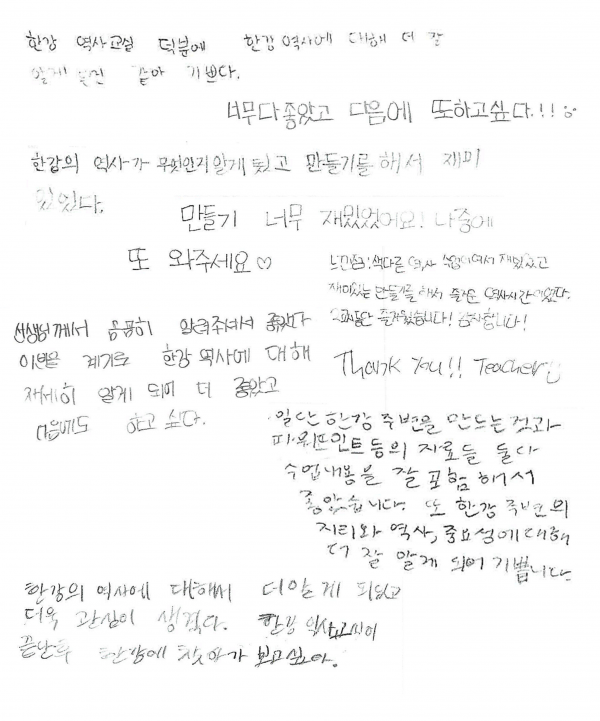 한강 역사교실 덕분에 한강 역사에 대해 더 잘
알게 된 것 같아 기쁘다.
너무다좋았고 다음에 또하고싶다.!!
한강의 역사가 무엇인지알게 됬고 만들기를 해서 재미
있었다.
만들기 너무 재밌었어요! 나중에
또 와주세요♡
느낀점:색다른 역사 수업이여서 재밌었고
재미있는 만들기를 해서 즐거운 역사시간이었다.
즐거웠습니다! 감사합니다!
선생님께서 꼼꼼히 알려주셔서 좋았다
이번을 계기로 한강 역사에 대해
자세히 알게 되어 더 좋았고
다음에도 하고 싶다.
Thank You!! Teacher
일단 한강 주변을 만드는 것과
파워포인트 등의 자료들 둘다
수업내용을 잘 포함해서
좋았습니다. 또 한강 주변의
지리와 역사, 중요성에 대해
더 잘 알게 되어 기쁩니다.
한강의 역사에 대해서 더알게 되었고
더욱 관심이 생겼다. 한강 역사교실이
끝난후 한강에 찾아가 보고싶다.